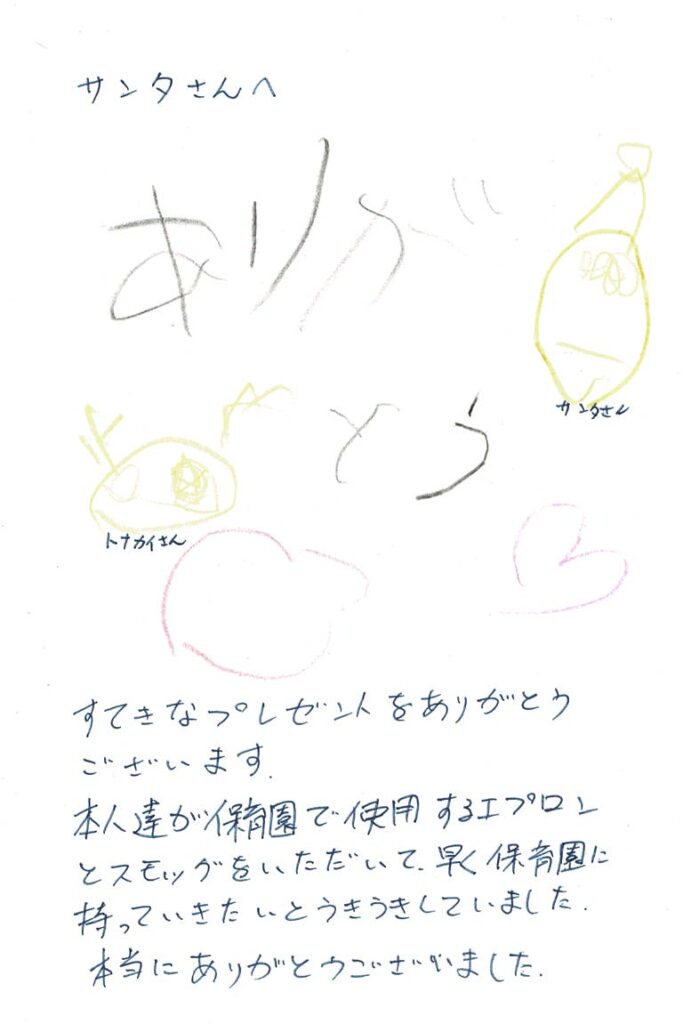 サンタさんへ
ありが
とう
サンタさん
トナカイさん
すてきなプレゼントをありがとう
ございます.
本人達が保育園で使用するエプロン
とスモッグをいただいて、早く保育園に
持っていきたいとうきうきしていました.
本当にありがとうございました.